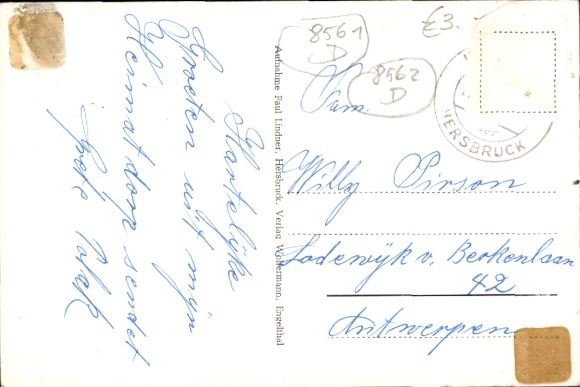 Hartelijke
Groeten uit mijn
Heimatdorp sendet
8561
D
8562
D
€3.
HERSBRUCK
Aufnahme Paul Lindner, Hersbruck, Verlag Wollermann, Engelthal
Fam.
Willy Pirson
Lodewijk v. Berkenlaan
42
Antwerpen